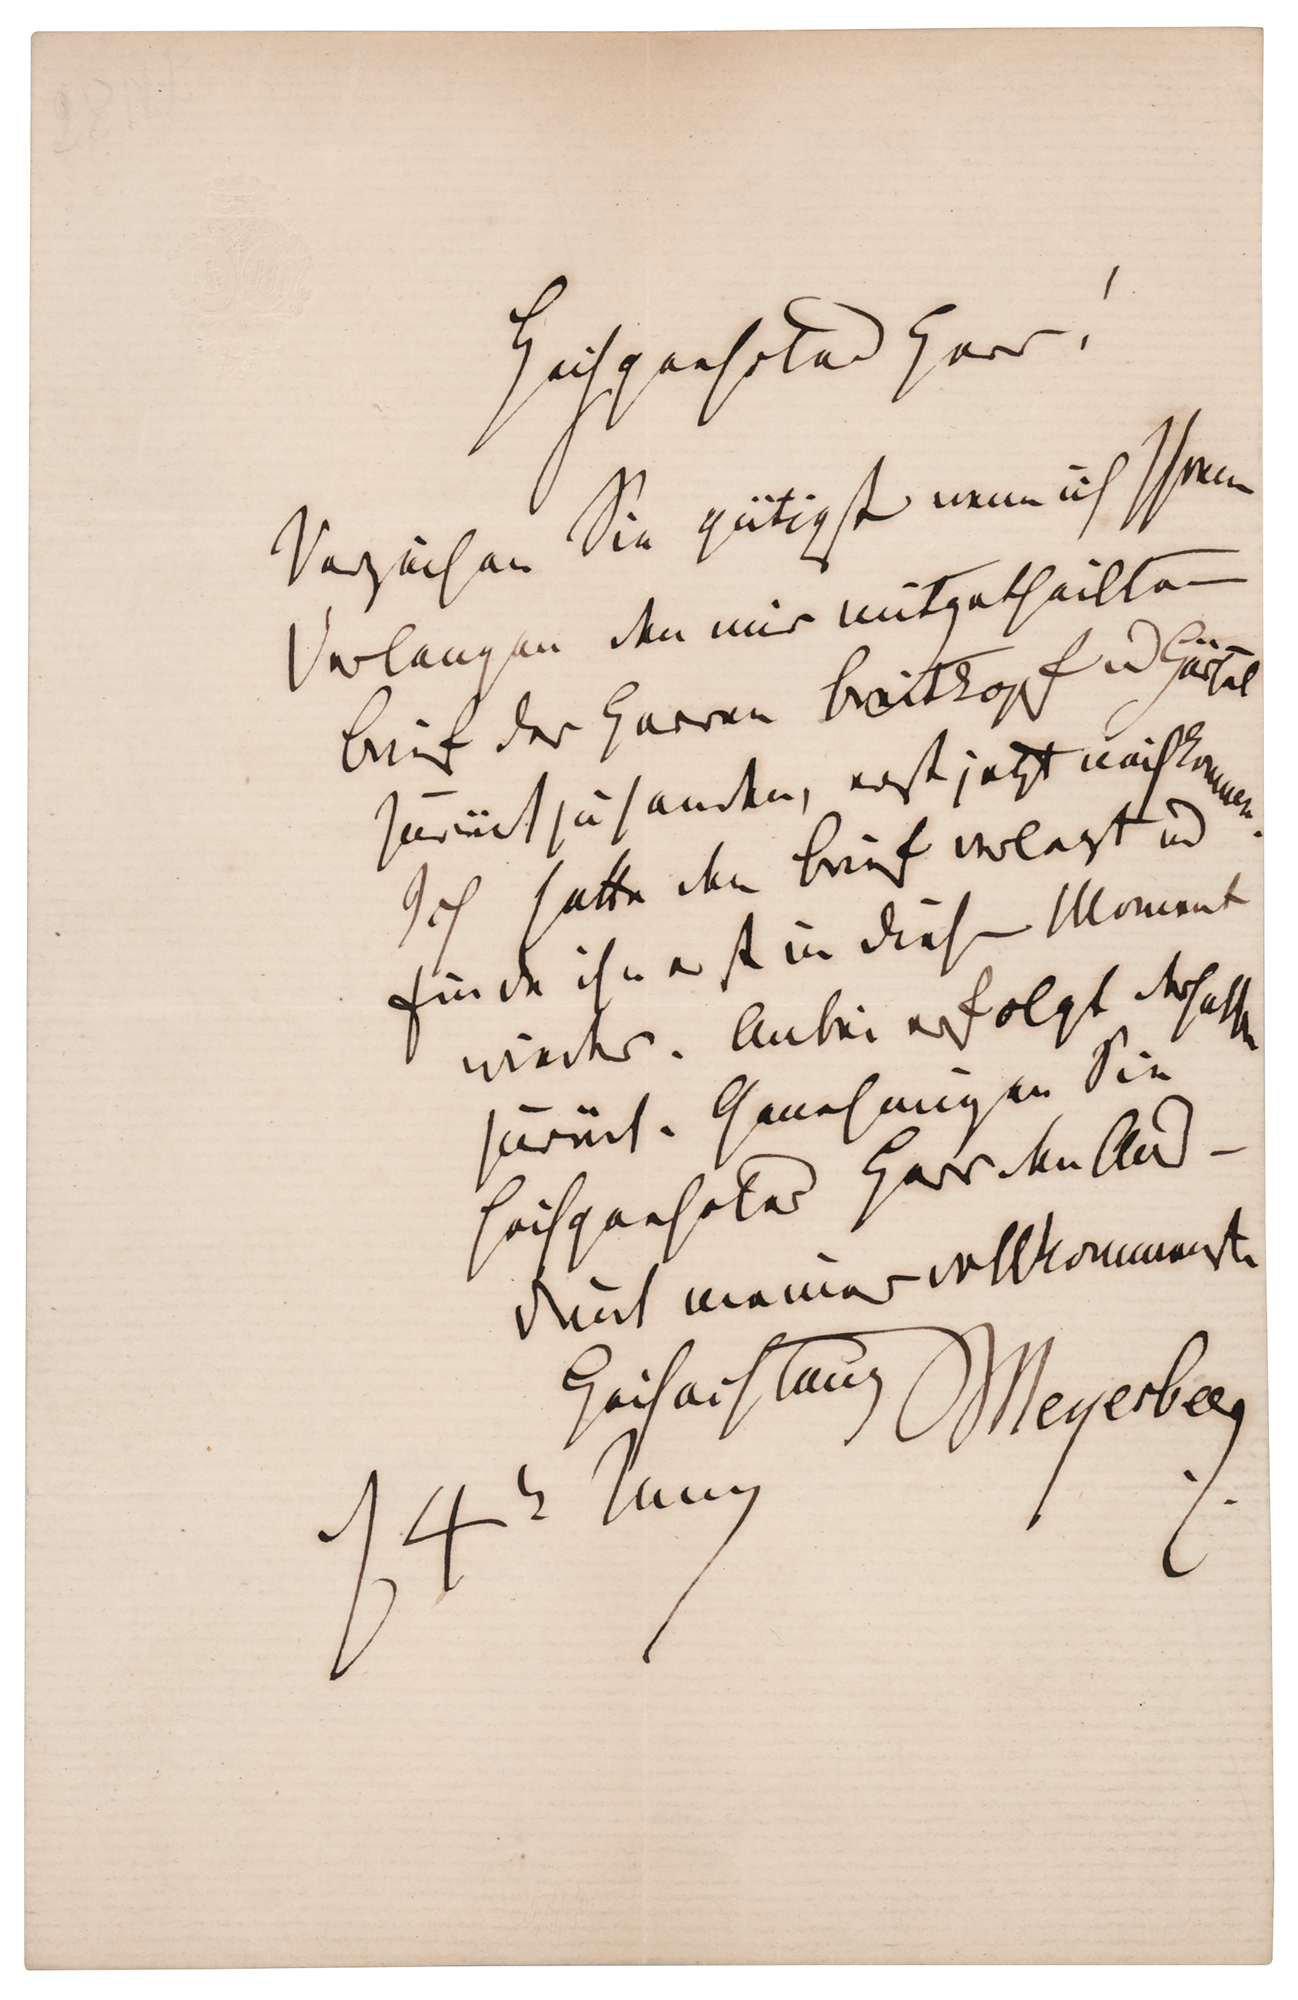 Hochgeehrter Herr!
Verzeihen Sie gütigst wenn ich Ihrem
Verlangen den mir mitgetheilten
Brief der Herren Breitkopf u Härtel
zurückzusenden, erst jetzt nachkomme.
Ich hatte den Brief verlegt und
finde ihn erst in diesem Moment
wieder. Anbei erfolgt derselbe
zurück. Genehmigen Sie
hochgeehrter Herr den Aus-
druck meiner vollkommensten
Hochachtung Meyerbeer
4 Juny